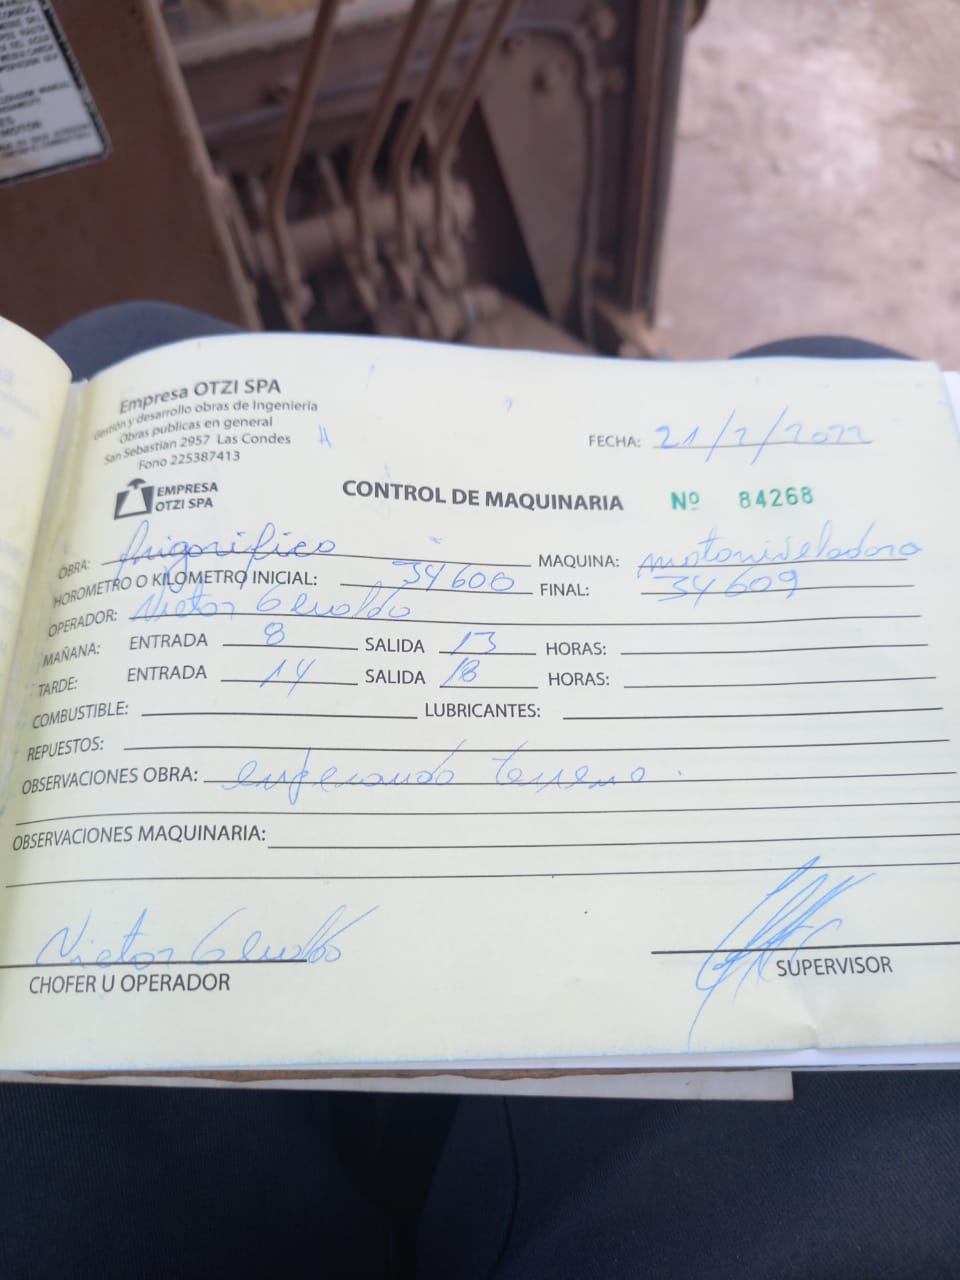 MOTOR
Empresa OTZI SPA
Gestión y desarrollo obras de Ingeniería
Obras publicas en general
San Sebastian 2957 Las Condes
Fono 225387413
EMPRESA
OTZI SPA
FECHA: 21/2/2022
CONTROL DE MAQUINARIA Nº 84268
OBRA: frigorifico MAQUINA: motoniveladora
HOROMETRO O KILOMETRO INICIAL: 34600 FINAL: 34609
OPERADOR: Victor
MAÑANA: ENTRADA 8 SALIDA 13 HORAS:
TARDE: ENTRADA 14 SALIDA 18 HORAS:
COMBUSTIBLE: LUBRICANTES:
REPUESTOS:
OBSERVACIONES OBRA: terreno.
OBSERVACIONES MAQUINARIA:
Victor
CHOFER U OPERADOR
SUPERVISOR